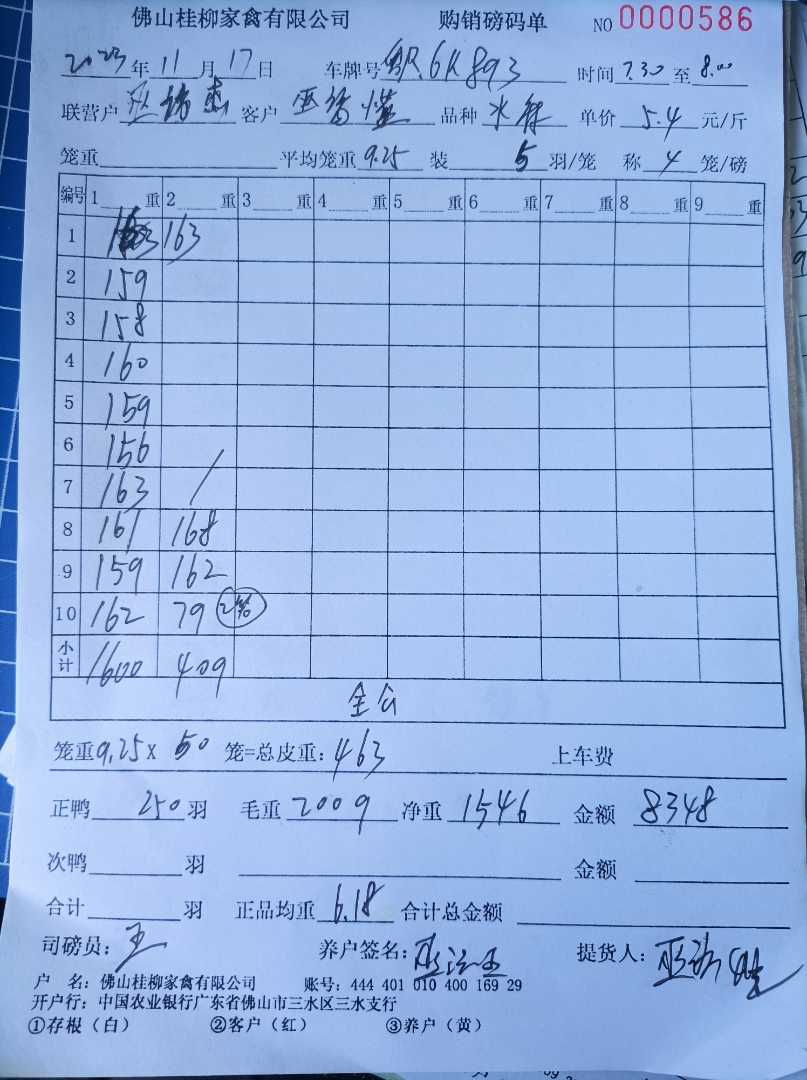 佛山桂柳家禽有限公司 购销磅码单 NO 0000586
2023年11月17日 车牌号 6K893 时间 7.30 至 8.00
联营户 客户 亚 品种 水鸭 单价 5.4 元/斤
笼重 平均笼重 9.25 装 5 羽/笼 称 4 笼/磅
编号 1 重 2 重 3 重 4 重 5 重 6 重 7 重 8 重 9 重
1 163 163
2 159
3 158
4 160
5 159
6 156
7 163 /
8 161 168
9 159 162
10 162 79 2笼
小计 1600 409
全公
笼重9.25 x 50 笼=总皮重: 463 上车费
正鸭 250 羽 毛重 2009 净重 1546 金额 8348
次鸭 羽 金额
合计 羽 正品均重 6.18 合计总金额
司磅员: 王 养户签名: 提货人:
户 名: 佛山桂柳家禽有限公司 账号: 444 401 010 400 169 29
开户行: 中国农业银行广东省佛山市三水区三水支行
①存根（白） ②客户（红） ③养户（黄）